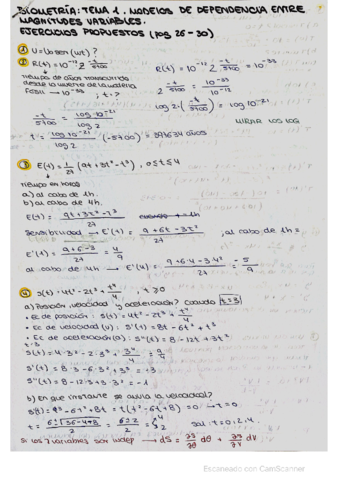 BIOMETRÍA: TEMA 1. MODELOS DE DEPENDENCIA ENTRE
MAGNITUDES VARIABLES.
EJERCICIOS PROPUESTOS (pág 26-30)
① U = U₀ sen(wt)?
② R(t) = 10⁻¹² 2^(-t/5700)
R(t) = 10⁻¹² 2^(-t/5700) = 10⁻³³
tiempo de años transcurrido
desde la muerte de la materia
fósil → 10⁻³³ ; t = ?
2^(-t/5700) = 10⁻³³/10⁻¹²
log 2·(-t/5700) = log 10⁻²¹
-t/5700 = log 10⁻²¹/log 2
t = log 10⁻²¹/log 2 · (-5700) = 397634 años
③ E(t) = 1/27 (9t + 3t² - t³), 0 ≤ t ≤ 4
tiempo en horas
a) al cabo de 1h.
b) al cabo de 4h.
E(t) = 9t + 3t² - t³/27
Sensibilidad → E'(t) = 9 + 6t - 3t²/27 ; al cabo de 1h =
E'(t) = 9 + 6 - 3/27 = 4/9
al cabo de 4h → E'(4) = 9 + 6·4 - 3·4²/27 = -5/9
④ S(t) = 4t² - 2t³ + t⁴/4, t ≥ 0
a) Posición, velocidad y aceleración? Cuando t = 3
• Ec de posición: S(t) = 4t² - 2t³ + t⁴/4
• Ec de velocidad (v): S'(t) = 8t - 6t² + t³
• Ec de aceleración (a): S''(t) = 8 - 12t + 3t²
t = 3
S(t) = 4·3² - 2·3³ + 3⁴/4 = 9/4
S'(t) = 8·3 - 6·3² + 3³ = -3
S''(t) = 8 - 12·3 + 3·3² = -1
b) en que instante se anula la velocidad?
t = 6 ± √36 - 4·8/2 = 6 ± 2/2 = 4 2
Sol: t = 0, 2, 4.
Si las variables son indep → dS = ∂S/∂θ dθ + ∂S/∂V dV
Escaneado con CamScanner